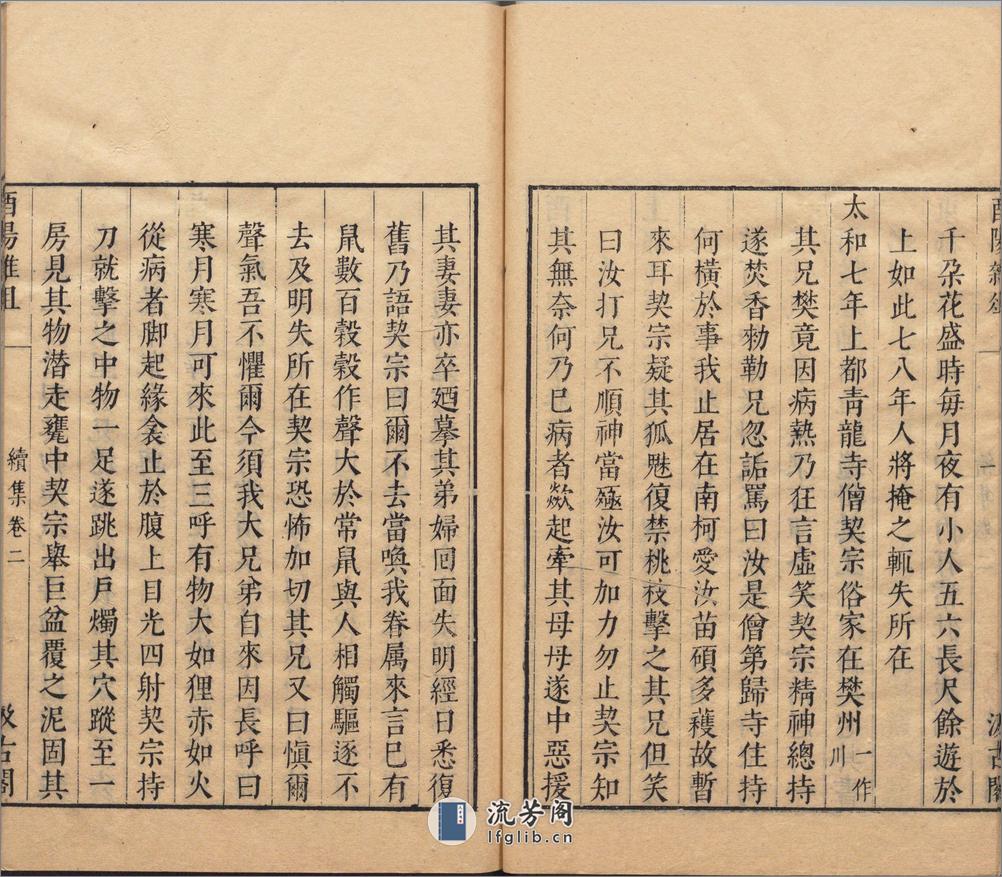 酉陽雜俎 一 汲古閣
千朵花盛時每月夜有小人五六長尺餘遊於
上如此七八年人將掩之輒失所在
太和七年上都青龍寺僧契宗俗家在樊州一作川
其兄樊竟因病熱乃狂言虛笑契宗精神總持
遂焚香勑勒兄忽詬罵曰汝是僧第歸寺住持
何橫於事我止居在南柯愛汝苗碩多穫故暫
來耳契宗疑其狐魅復禁桃枝擊之其兄但笑
曰汝打兄不順神當殛汝可加力勿止契宗知
其無奈何乃已病者欻起牽其母母遂中惡援
其妻妻亦卒廼摹其弟婦囘面失明經日悉復
舊乃語契宗曰爾不去當喚我眷属來言已有
鼠數百穀穀作聲大於常鼠與人相觸驅逐不
去及明失所在契宗恐怖如切其兄又曰慎爾
聲氣吾不懼爾今須我大兄弟自來因長呼曰
寒月寒月可來此至三呼有物大如狸赤如火
從病者脚起緣衾止於腹上目光四射契宗持
刀就擊之中物一足遂跳出戶燭其穴蹤至一
房見其物潜走甕中契宗舉巨盆覆之泥固其
酉陽雜俎 續集卷二 汲古閣
流芳阁
lfglib.cn